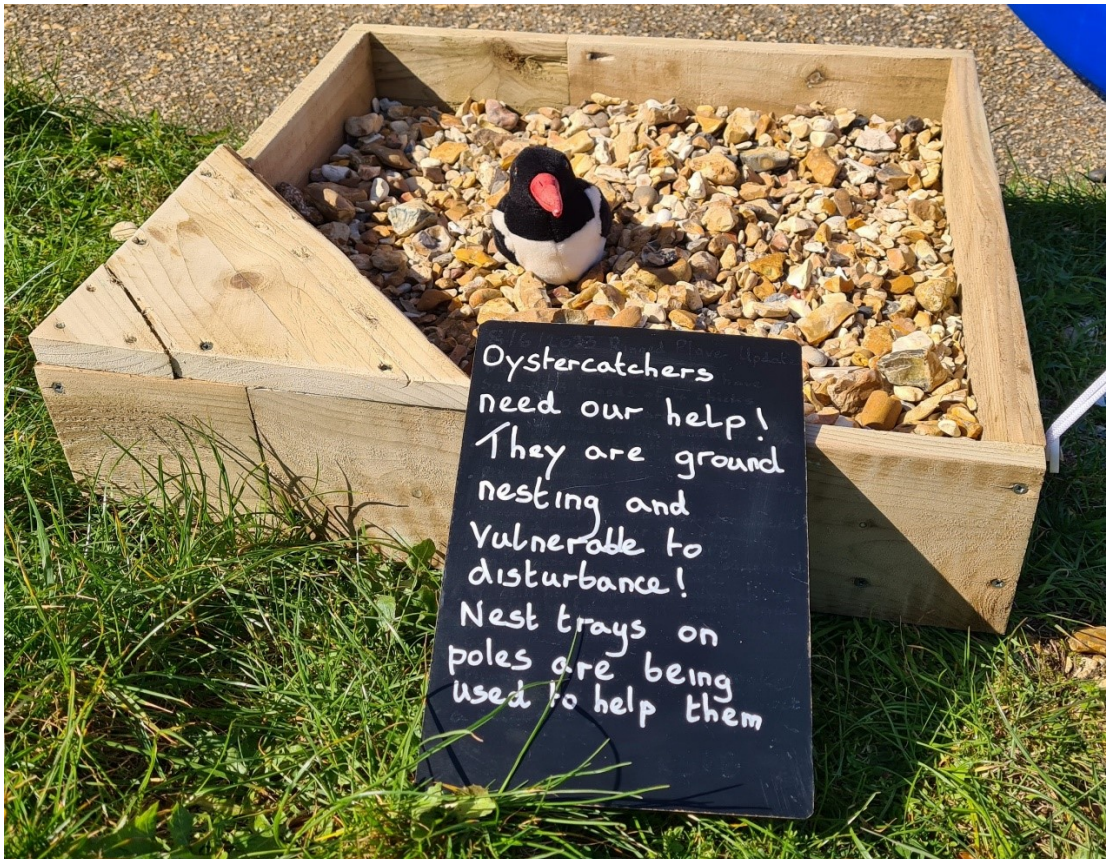 Oystercatchers
need our help!
They are ground
nesting and
vulnerable to
disturbance!
Nest trays on
poles are being
used to help them